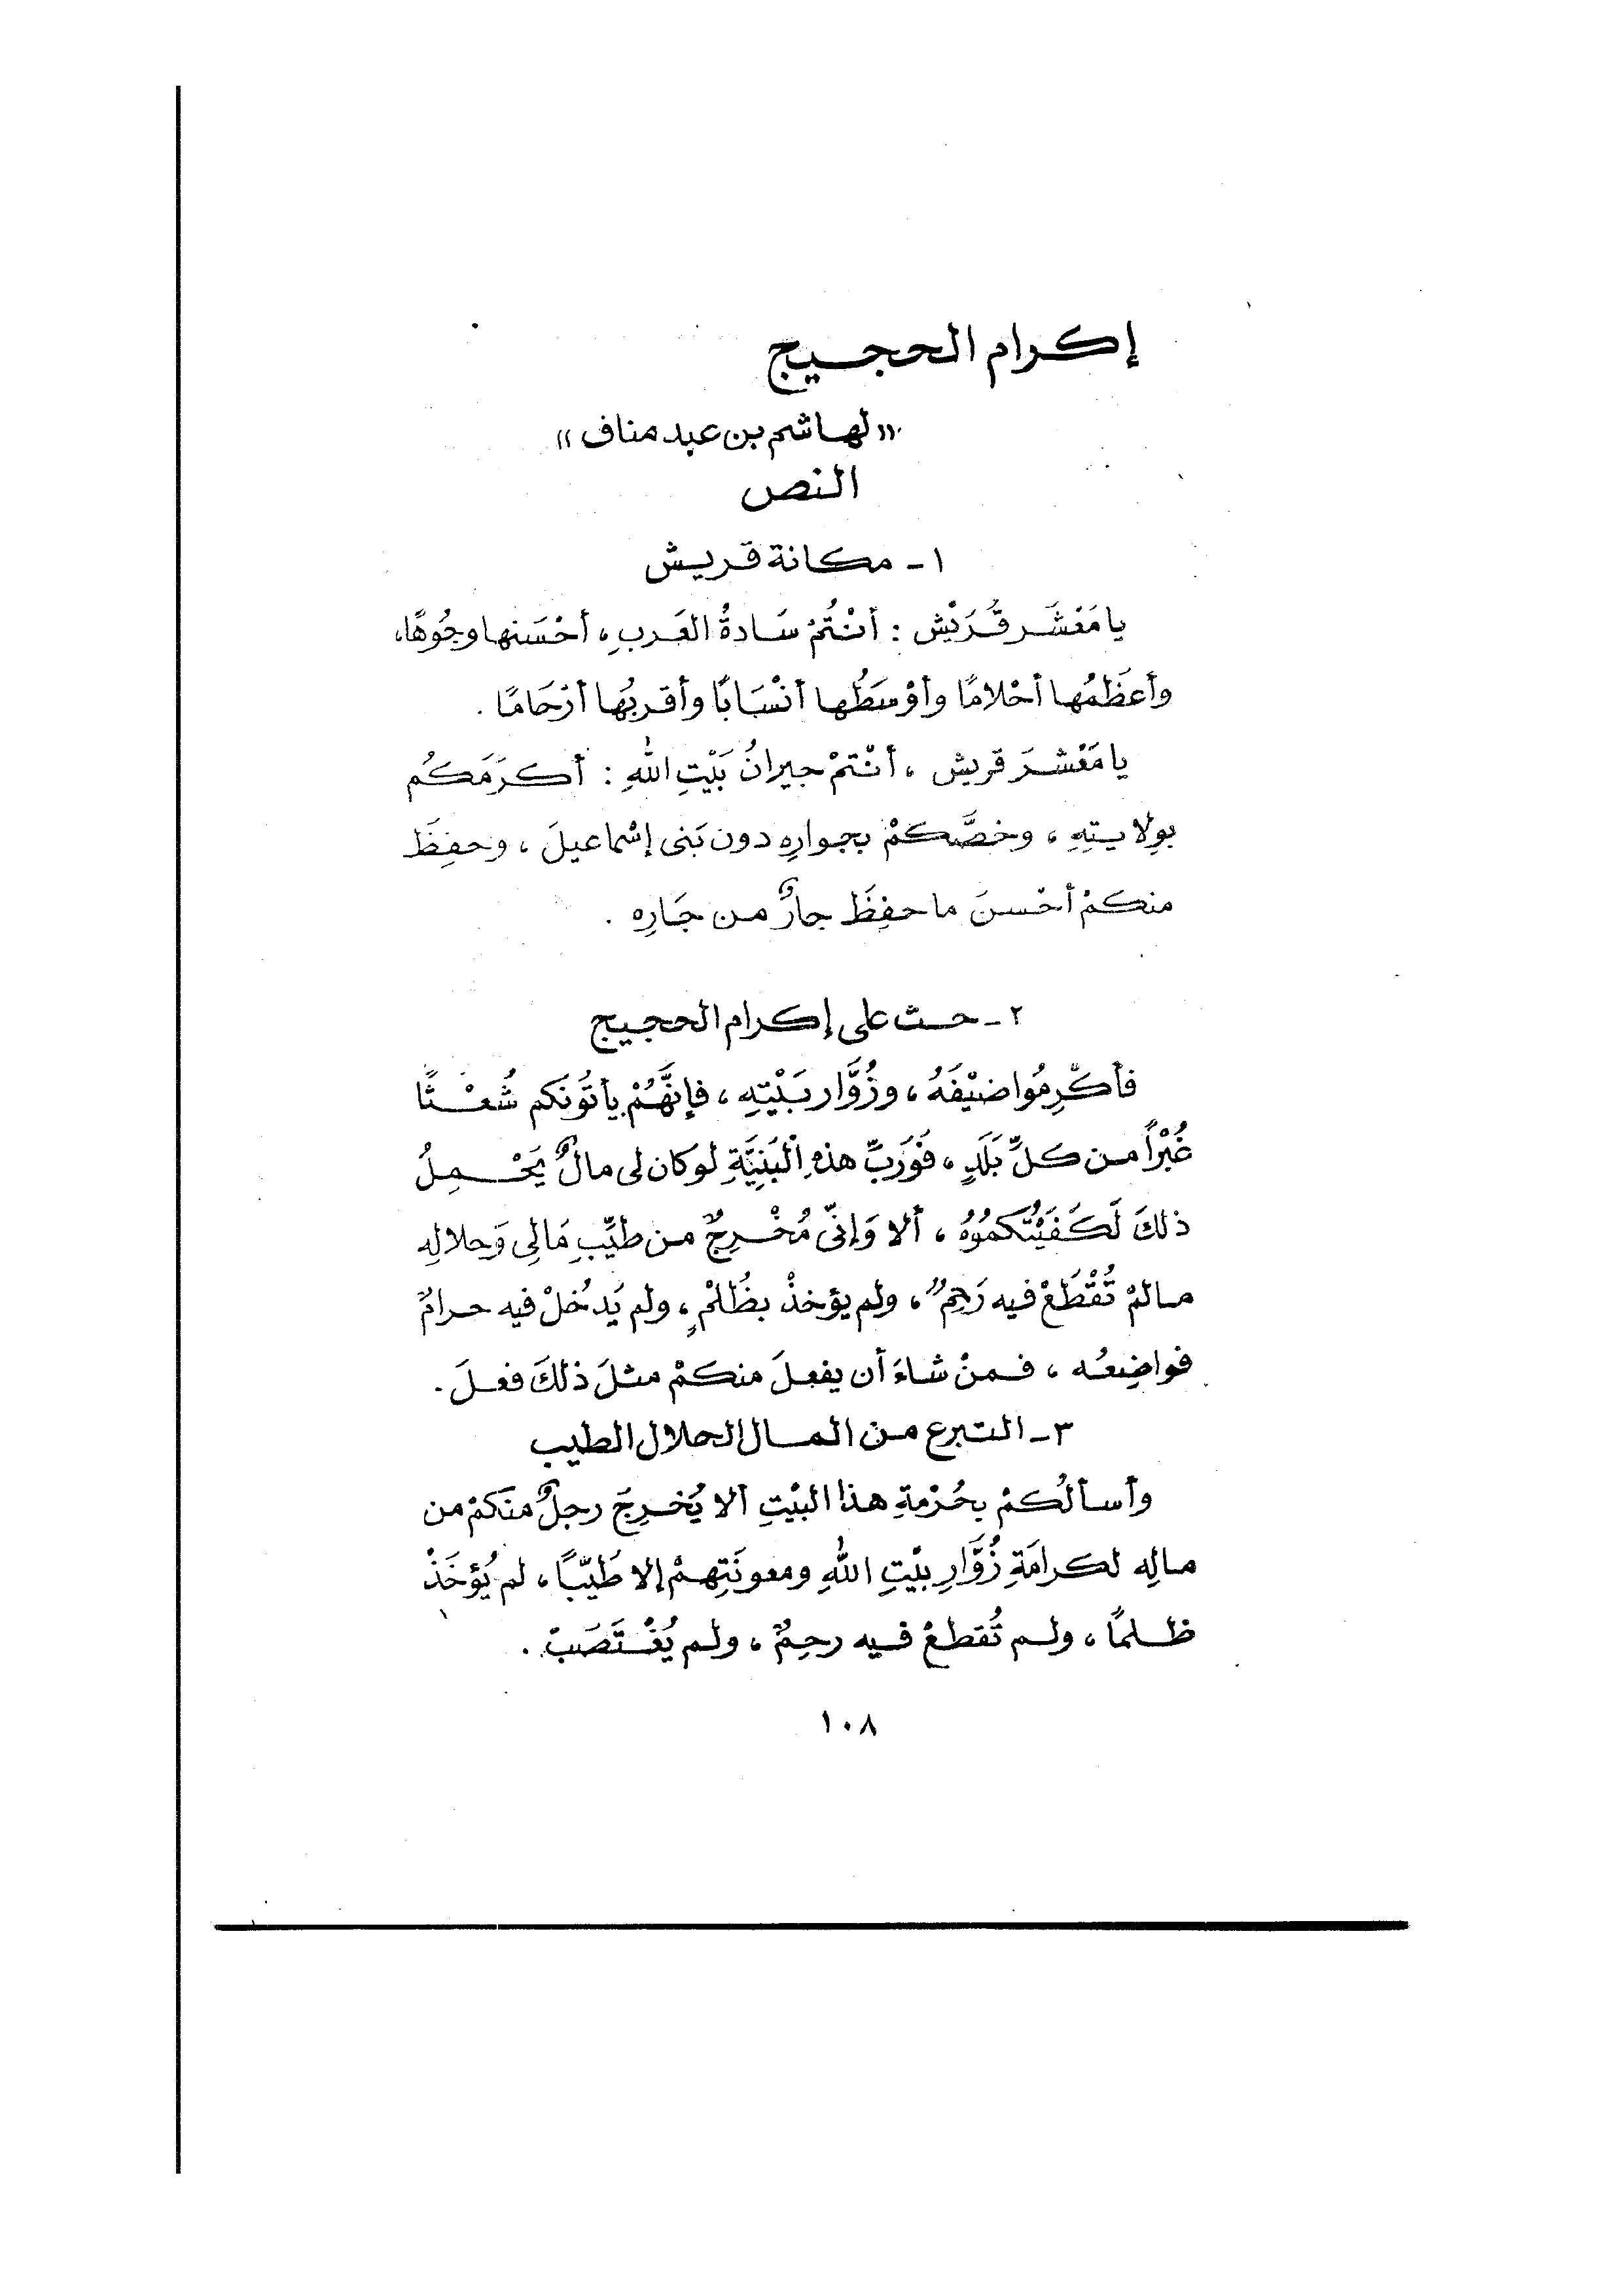 إكرام الحجيج
«لهاشم بن عبد مناف»
النص
١- مكانة قريش
يا مَعْشَر قُرَيْش : أنْتُمْ سَادةُ العَربِ، أحْسَنها وجُوهًا،
وأعظَمُها أحْلامًا وأوْسَطُها أنْسَابًا وأقربُها أرْحَامًا .
يا مَعْشرَ قريش ، أنْتمْ جيرانُ بَيْتِ اللهِ : أكرَمَكُم
بوِلايـتهِ ، وخصَّكمْ بجوارِهِ دون بَنى إسْماعيلَ ، وحفِظَ
منكمْ أحْسنَ ما حفِظَ جارٌ من جَارِه .
٢- حث على إكرام الحجيج
فأكْرِمُوا ضيْفَهُ ، وزُوَّار بَيْتِهِ ، فإنَّهُمْ يأتُونَكم شُعْثًا
غُبْراً من كلِّ بَلَدٍ ، فَوَربِّ هذهِ الْبَنِيَّةِ لو كان لى مالٌ يَحْمِلُ
ذلكَ لَكَفَيْتُكمُوهُ ، ألا وَإنىِّ مُخْرِجٌ من طيِّبِ مَالِى وَحلالِهِ
مالمْ تُقْطَعْ فيه رَحِمٌ ، ولم يؤخذْ بظُلْمٍ ، ولم يَدخُلْ فيه حرامٌ
فواضِعُه ، فمنْ شاءَ أن يفعلَ منكمْ مثلَ ذلكَ فعلَ .
٣- التبرع من المال الحلال الطيب
وأسألُكمْ بحُرْمةِ هذا البيْتِ ألا يُخرِجَ رجلٌ منكمْ من
مالِه لكرامَةِ زُوَّارِ بيْتِ اللهِ ومعونَتِهمْ إلا طَيِّبًا ، لم يُؤخَذْ
ظلمًا ، ولم تُقطعْ فيه رحِمٌ ، ولم يُغْتَصَبْ .
١٠٨